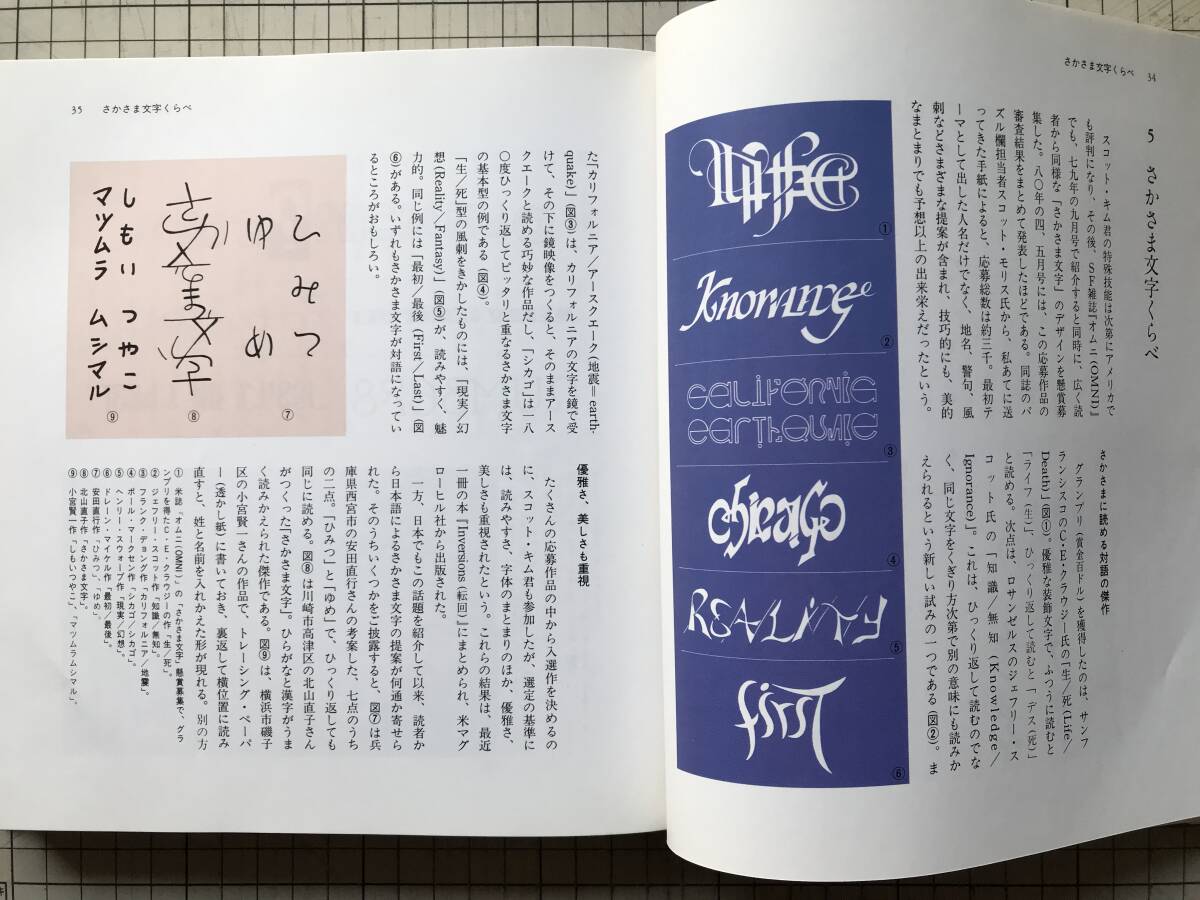 さかさま文字くらべ 34
5 さかさま文字くらべ
スコット・キム君の特殊技能は次第にアメリカで
も評判になり、その後、SF雑誌『オムニ(OMNI)』
でも、七九年の九月号で紹介すると同時に、広く読
者から同様な「さかさま文字」のデザインを懸賞募
集した。八〇年の四、五月号には、この応募作品の
審査結果をまとめて発表したほどである。同誌のパ
ズル欄担当者スコット・モリス氏から、私あてに送
ってきた手紙によると、応募総数は約三千。最初テ
ーマとして出した人名だけでなく、地名、警句、風
刺などさまざまな提案が含まれ、技巧的にも、美的
なまとまりでも予想以上の出来栄えだったという。
さかさまに読める対語の傑作
グランプリ(賞金百ドル)を獲得したのは、サンフ
ランシスコのC・E・クラウジー氏の「生/死(Life/
Death)」(図①)。優雅な装飾文字で、ふつうに読むと
「ライフ(生)」、ひっくり返して読むと「デス(死)」
と読める。次点は、ロサンゼルスのジェフリー・ス
コット氏の「知識/無知(Knowledge/
Ignorance)」。これは、ひっくり返して読むのでな
く、同じ文字をくぎり方次第で別の意味にも読みか
えられるという新しい試みの一つである(図②)。ま
①
②
California
earthquake
③
chicago
④
REALITY
⑤
first
⑥
35 さかさま文字くらべ
た「カリフォルニア/アースクエーク(地震=earth-
quake)」(図③)は、カリフォルニアの文字を鏡で受
けて、その下に鏡映像をつくると、そのままアース
クエークと読める巧妙な作品だし、「シカゴ」は一八
〇度ひっくり返してピッタリと重なるさかさま文字
の基本型の例である(図④)。
「生/死」型の風刺をきかしたものには、「現実/幻
想(Reality/Fantasy)」(図⑤)が、読みやすく、魅
力的。同じ例には「最初/最後(First/Last)」(図
⑥)がある。いずれもさかさま文字が対語になってい
るところがおもしろい。
ひみつ
ゆめ
⑦
さかさま文字
⑧
しもいつやこ
マツムラ ムシマル
⑨
優雅さ、美しさも重視
たくさんの応募作品の中から入選作を決めるの
に、スコット・キム君も参加したが、選定の基準に
は、読みやすさ、字体のまとまりのほか、優雅さ、
美しさも重視されたという。これらの結果は、最近
一冊の本『Inversions(転回)』にまとめられ、米マグ
ローヒル社から出版された。
一方、日本でもこの話題を紹介して以来、読者か
ら日本語によるさかさま文字の提案が何通か寄せら
れた。そのうちいくつかをご披露すると、図⑦は兵
庫県西宮市の安田直行さんの考案した、七点のうち
の二点。「ひみつ」と「ゆめ」で、ひっくり返しても
同じに読める。図⑧は川崎市高津区の北山直子さん
がつくった「さかさま文字」。ひらがなと漢字がうま
く読みかえられた傑作である。図⑨は、横浜市磯子
区の小宮賢一さんの作品で、トレーシング・ペーパ
ー(透かし紙)に書いておき、裏返して横位置に読み
直すと、姓と名前を入れかえた形が現れる。別の方
①米誌『オムニ(OMNI)』の「さかさま文字」懸賞募集で、グラ
ンプリを得たC・E・クラウジーの作「生/死」。
②ジェフリー・スコット作「知識/無知」。
③フランク・デョング作「カリフォルニア/地震」。
④ポール・マークセン作「シカゴ/シカゴ」。
⑤ヘンリー・スウォープ作「現実/幻想」。
⑥ドレーン・マイケル作「最初/最後」。
⑦安田直行作「ひみつ」、「ゆめ」。
⑧北山直子作「さかさま文字」。
⑨小宮賢一作「しもいつやこ」、「マツムラムシマル」。